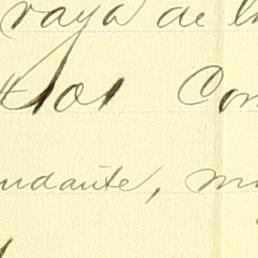 raya de l
tos Con
ndante, m